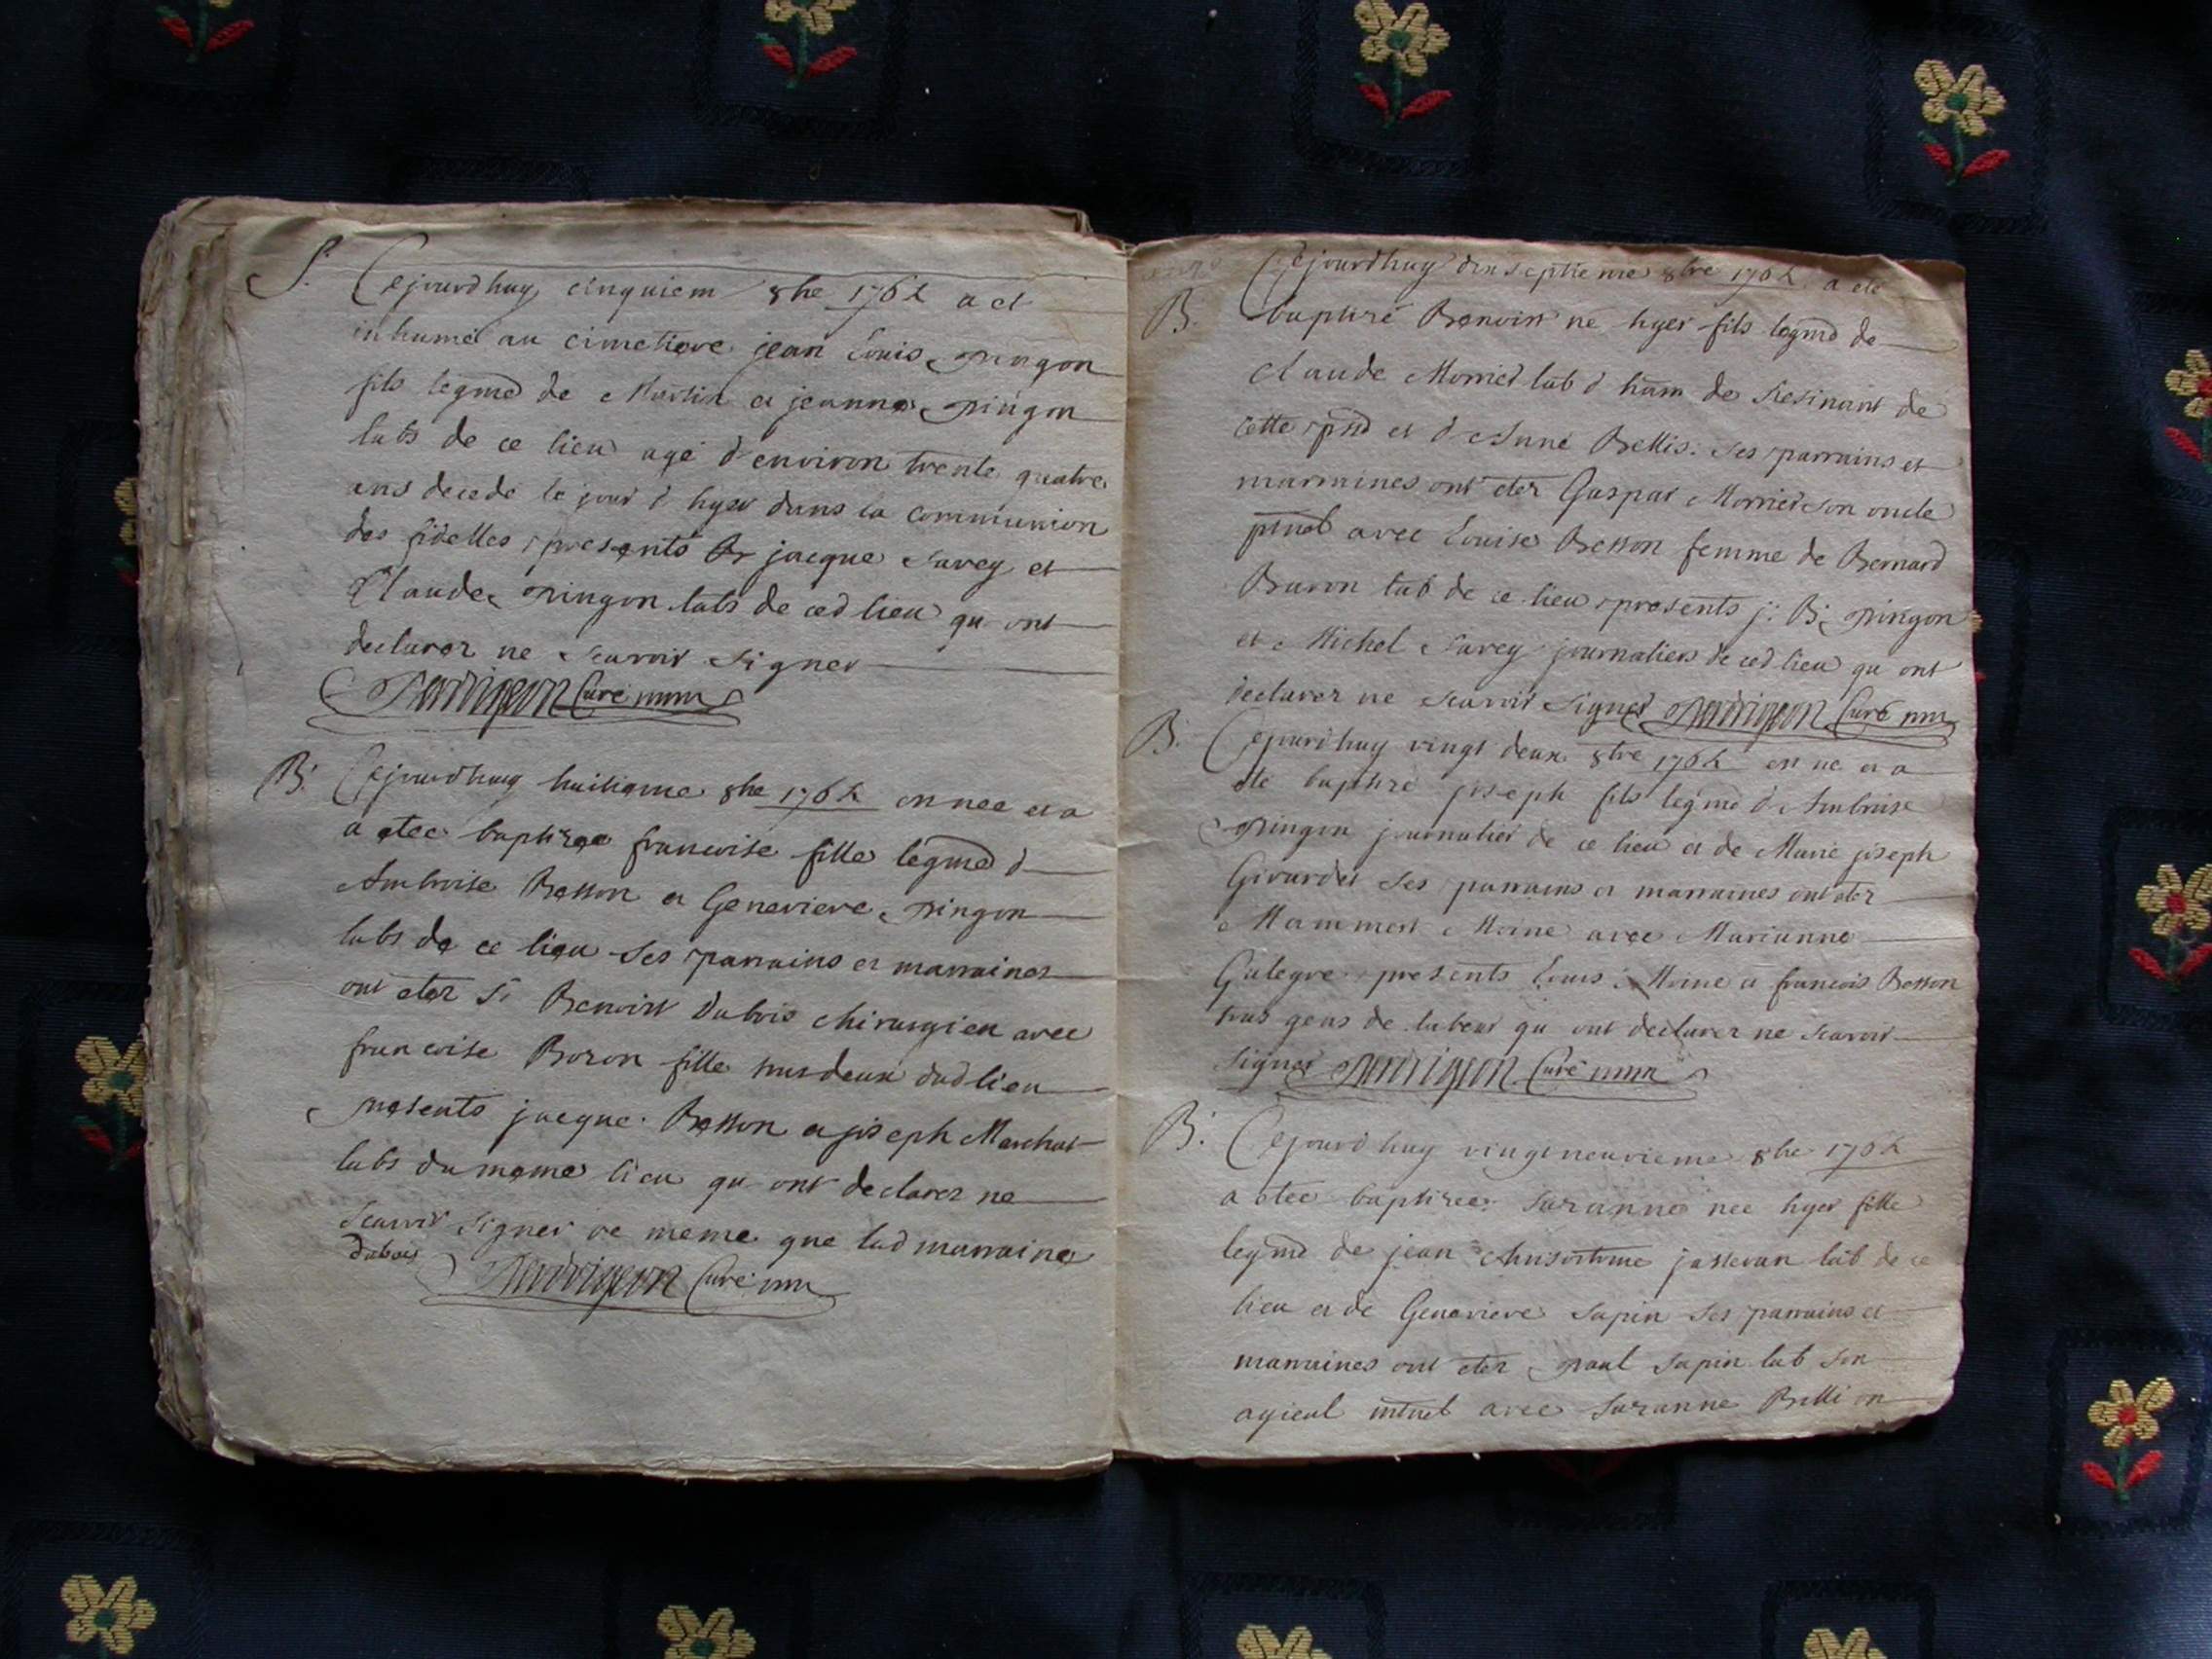 S. Cejourdhuy cinquiem 8bre 1762 a et
inhumé au cimetiere jean Louis pingon
fils legmè de Martin et jeanne pingon
labs de ce lieu agé d'environ trente quatre
ans decedé le jour d hyer dans la communion
des fidelles presents jacque Savey et
Claude pingon labs de ced lieu qu ont
declarer ne scavoir signer
Curé
B. Cejourdhuy huitieme 8bre 1762 en nee et a
a etee baptizee francoise fille legmè d
Ambroise Besson et Genevieve pingon
labs de ce lieu ses parrains et marraines
ont eter Sr Benoist Dubois chirurgien avec
francoise Boron fille tous deux dud lieu
presents jacque Besson et joseph Marchat
labs du meme lieu qu ont declarer ne
scavoir signer de meme que lad marraine
dubois Curé
Cejourdhuy dix septieme 8bre 1762 a eté
B. baptizé Benoist né hyer fils legmè de
Claude Morrier lab d ham de de
cette et d Anne Bellis. ses parrains et
marraines ont eter Gaspar Morrier son oncle
ptnel avec Louise Besson femme de Bernard
Buron lab de ce lieu presents j: B: pingon
et Michel Savey journaliers de ced lieu qu ont
declarer ne scavoir signer Curé
B. Cejourdhuy vingt deux 8bre 1762 en né et a
eté baptizé joseph fils legmè d Ambroise
pingon journalier de ce lieu et de Marie joseph
Girardet ses parrains et marraines ont eter
Mammest Moine avec Marianne
presents Louis Moine et francois Besson
tous gens de labeur qu ont declarer ne scavoir
signer Curé
B. Cejourdhuy vingt neuvieme 8bre 1762
a etee baptizee Suzanne nee hyer fille
legmè de jean Chrisostome lab de ce
lieu et de Genevieve Sapin ses parrains et
marraines ont eter paul Sapin lab son
ayieul mtnel avec Suzanne Bellion